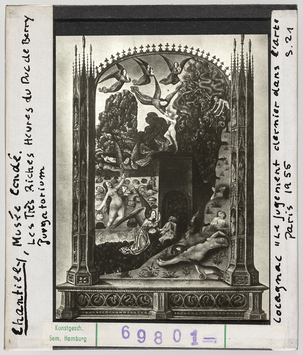 Chantilly, Musée Condé,
Les Très Riches Heures du Duc de Berry
Purgatorium
Cocagnac "Le jugement dernier dans l'art"
Paris 1955 S. 21
Kunstgesch.
Sem. Hamburg
69801-